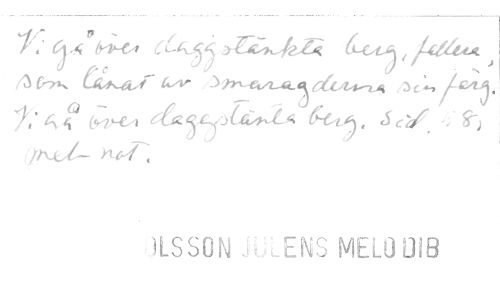 Vi gå över daggstänkta berg, fallera,
som lånat av smaragderna sin färg.
Vi gå över daggstänkta berg. Sid. 48,
mel- not.
OLSSON JULENS MELODIB